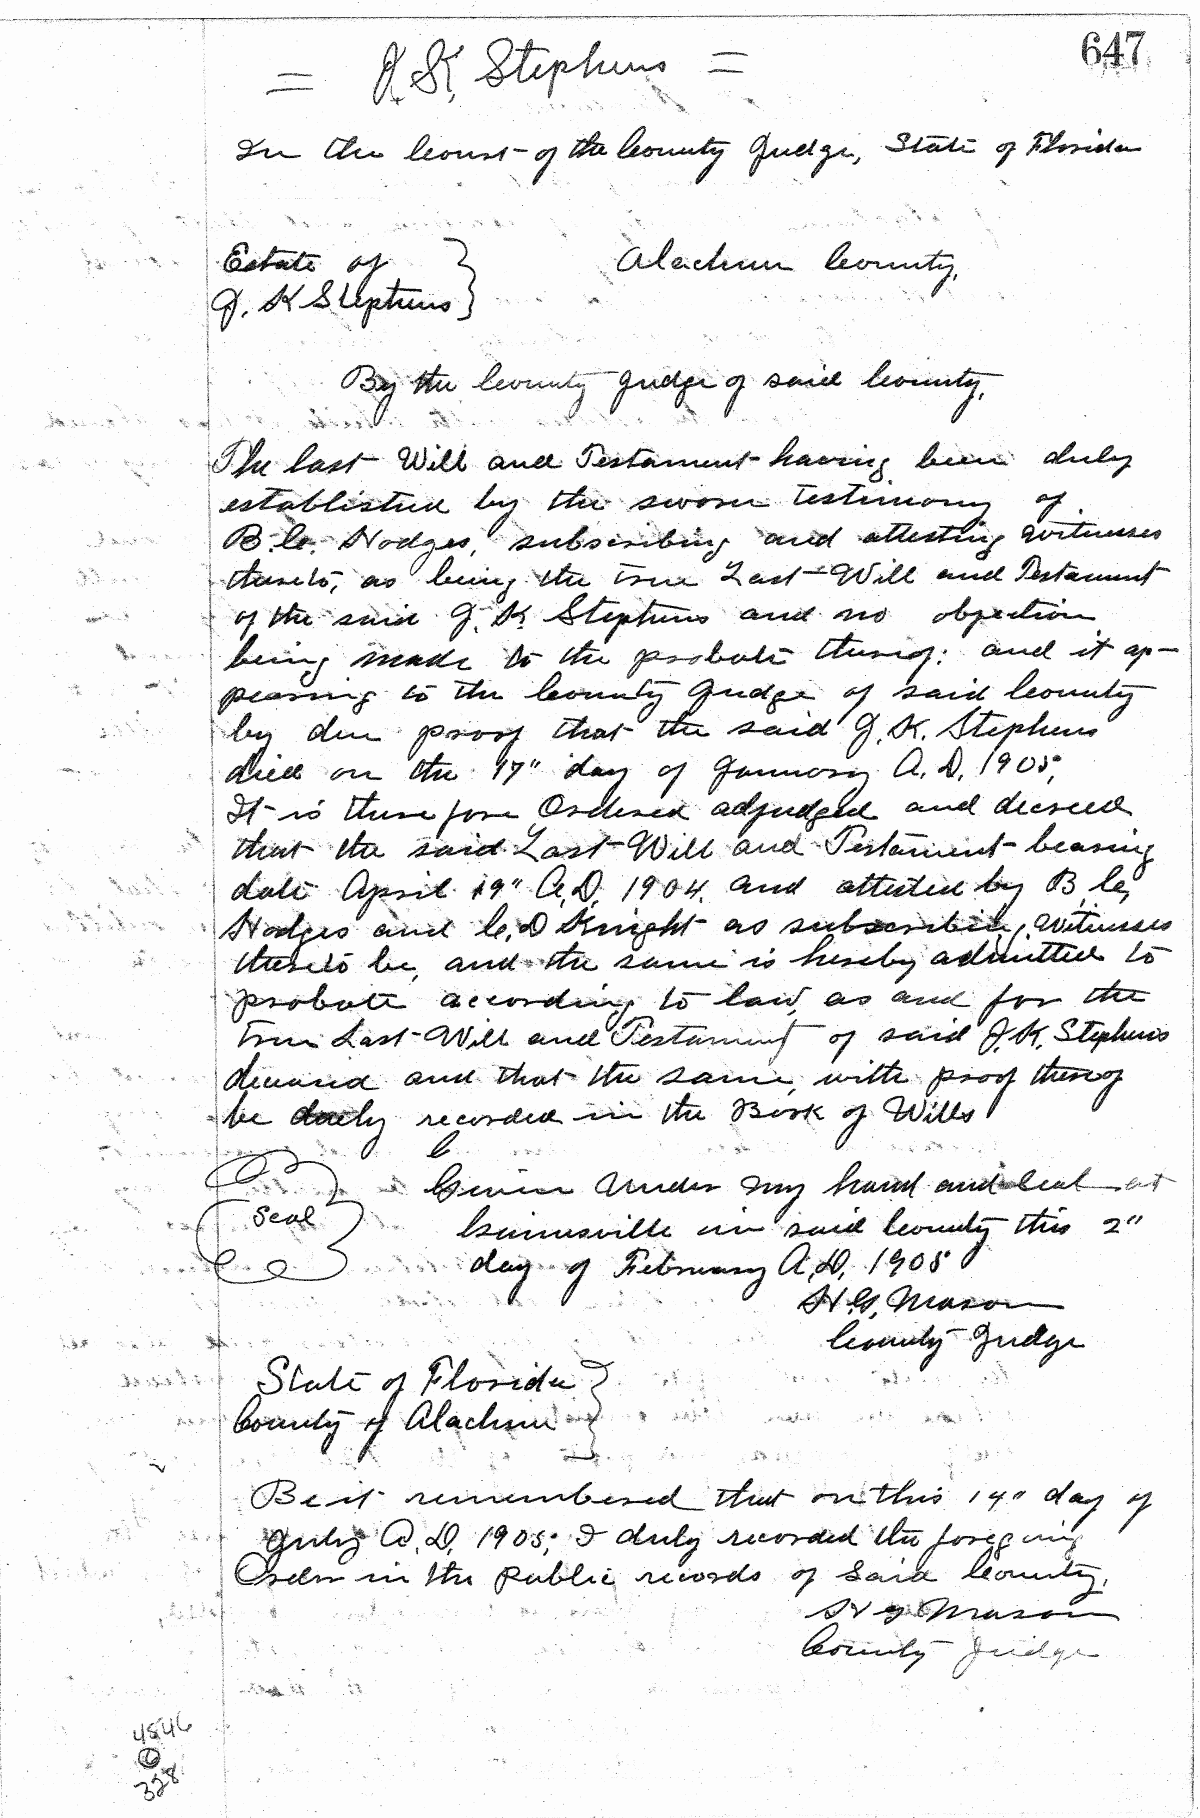 647
= J. K. Stephens =
In the Court of the County Judge, State of Florida
Estate of
J. K Stephens
Alachua County,
By the County Judge of said County,
The last Will and Testament having been duly
established by the sworn testimony of
B. C. Hodges, subscribing and attesting witnesses
thereto, as being the true Last Will and Testament
of the said J. K. Stephens and no objection
being made to the probate thereof: and it ap-
pearing to the County Judge of said County
by due proof that the said J. K. Stephens
died on the 17" day of January A. D. 1905,
It is therefore Ordered adjudged and decreed
that the said Last Will and Testament bearing
date April 19" A.D. 1904. and attested by B. C,
Hodges and C. D Knight as subscribing Witnesses
thereto be, and the same is hereby admitted to
probate according to law, as and for the
true Last Will and Testament of said J. K. Stephens
deceased and that the same, with proof thereof
be duely recorded in the Book of Wills
Given Under my hand and seal at
Seal
Gainesville in said County this 2"
day of February A, D. 1905
H. G. Mason
County Judge
State of Florida
County of Alachua
Be it remembered that on this 14" day of
July A. D. 1905; I duly recorded the foregoing
Order in the public records of Said County,
H G Mason
County Judge
4846
328